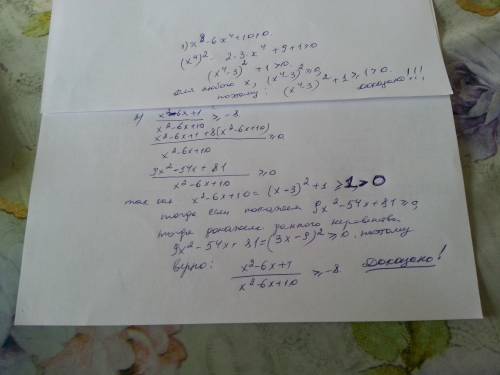 1) x⁸-6x⁴+10>0.
(x⁴)² - 2·3·x⁴ + 9+1>0
(x⁴-3)² +1>0.
для любого x, (x⁴-3)²≥0,
поэтому: (x⁴-3)²+1≥1>0.
доказано!!!
2) x²-6x+1 / x²-6x+10 ≥ -8
x²-6x+1+8(x²-6x+10) / x²-6x+10 ≥0
9x²-54x+81 / x²-6x+10 ≥0
так как x²-6x+10=(x-3)²+1≥1>0
тогда если покажем 9x²-54x+81≥0,
тогда докажем данного неравенства.
9x²-54x+81=(3x-9)²≥0. поэтому
верно: x²-6x+1 / x²-6x+10 ≥-8 Доказано!